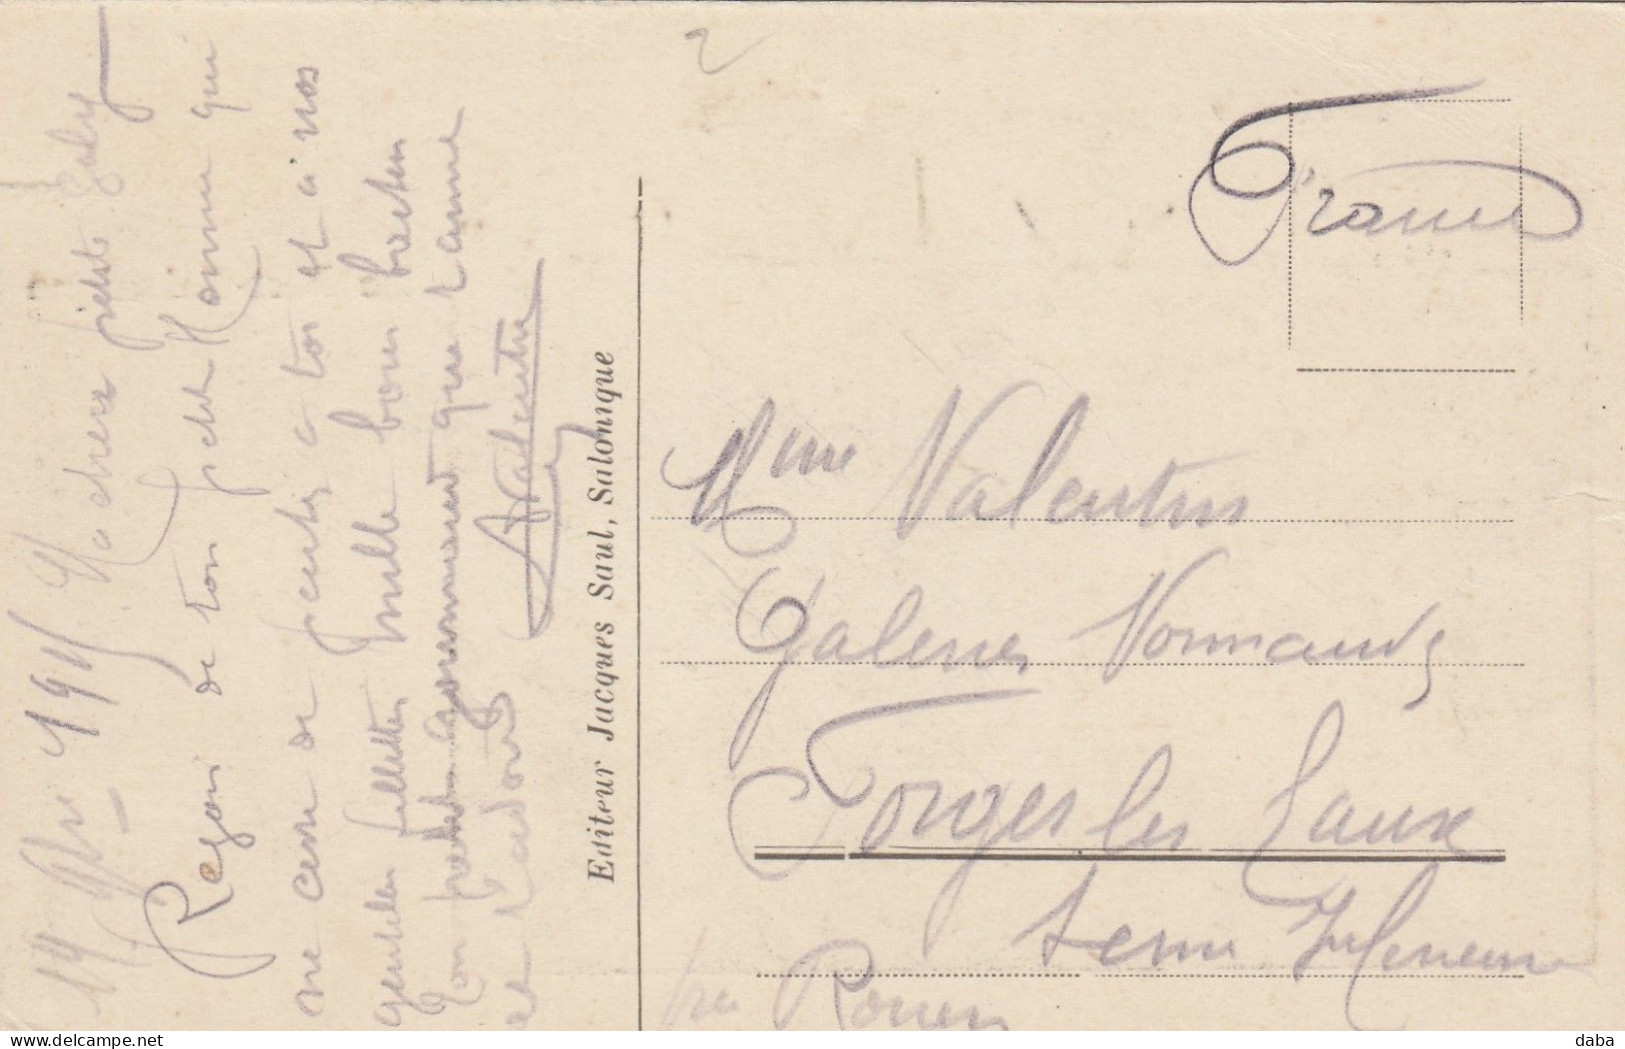 19 1917 Ma chere petite Gaby
Reçois de ton petit Homme qui
ne cesse de penser a toi et a nos
gentilles fillettes mille bons baisers
Ton petit que t'aime
et t'adore
Valentin
Editeur Jacques Saul, Salonique
2
France
Mme Valentin
Galeries Normandes
Forges les Eaux
Seine Inferieure
pres Rouen
delcampe.net
daba